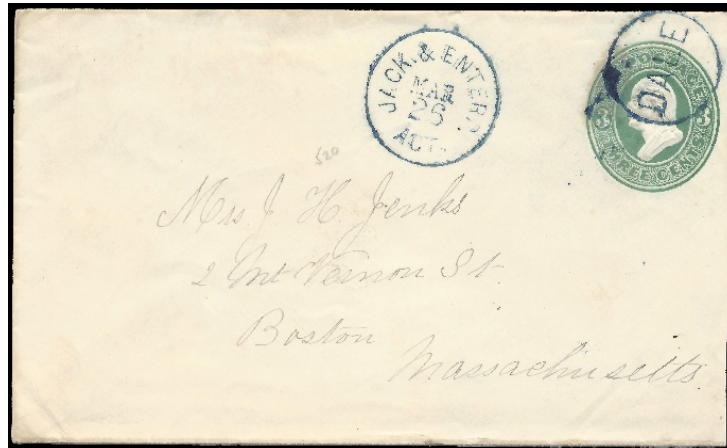 JACK. & ENTERP.
MAR
26
ACT.
DALE
POSTAGE
3 3
THREE CENTS
520
Mrs J. H. Jenks
2 Mt Vernon St.
Boston
Massachusetts